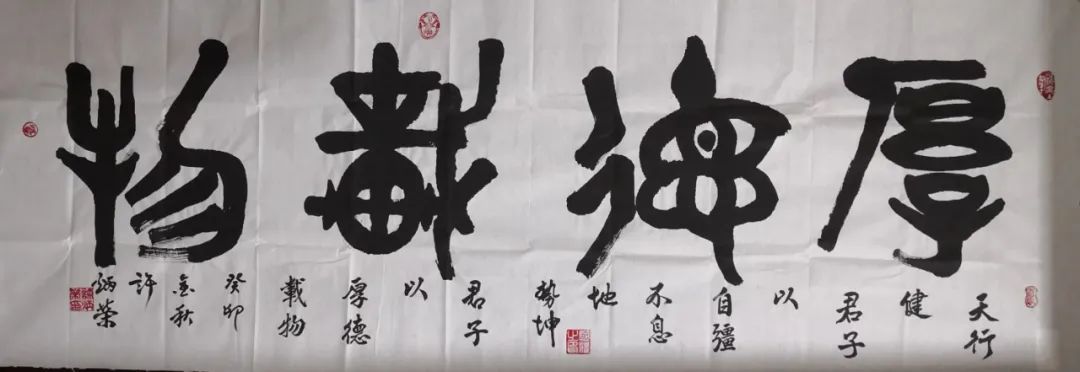 厚德載物
天行
健
君子
以
自疆
不息
地
勢坤
君子
以
厚德
載物
癸卯
金秋
許
炳榮